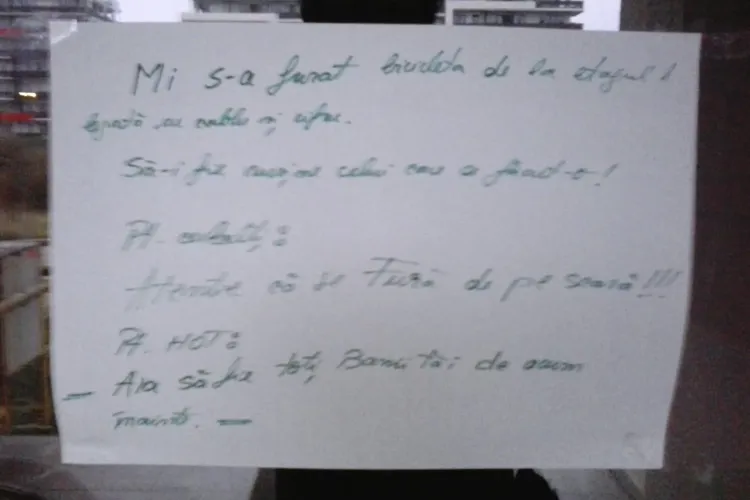 Mi s-a furat bicicleta de la etajul 1
legată cu cablu și cifru.
Să-i fie rușine celui care a făcut-o!
Pt. ceilalți:
Atenție că se Fură de pe scară!!!
Pt. HOT:
- Așa să fie toți Banii Tăi de acum
înainte. -